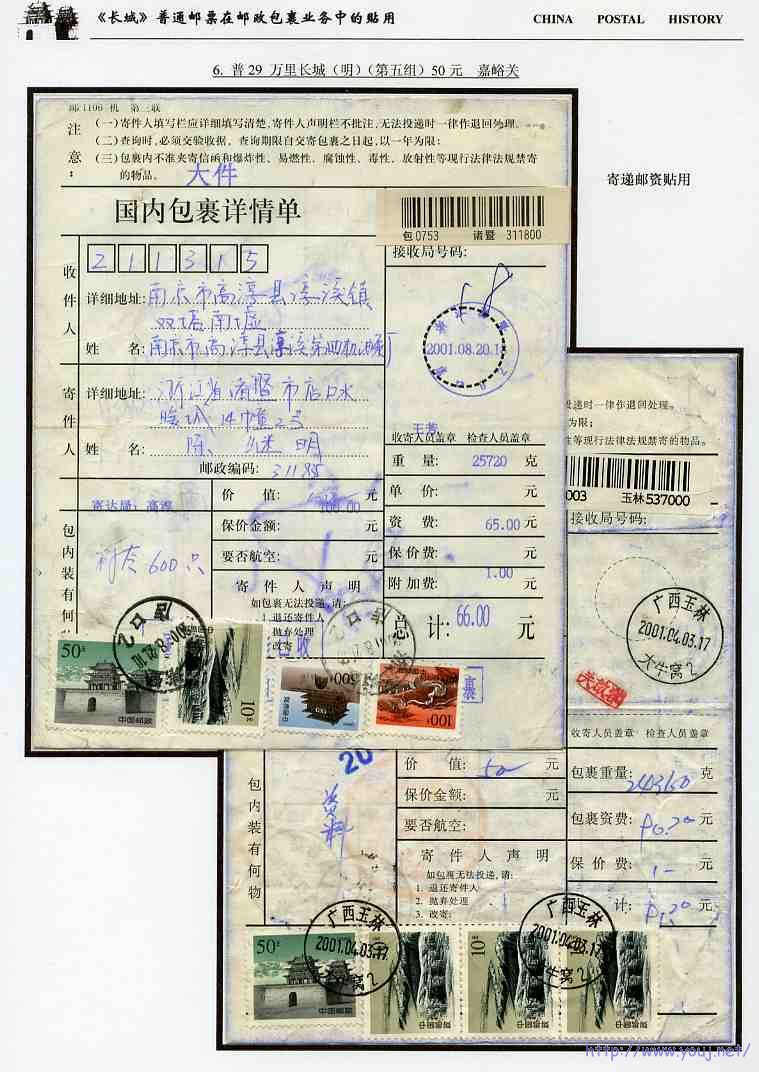 《长城》普通邮票在邮政包裹业务中的贴用
CHINA POSTAL HISTORY
6. 普29 万里长城（明）（第五组）50元 嘉峪关
寄递邮资贴用
邮1106 机 第三联
注意：
（一）寄件人填写栏应详细填写清楚，寄件人声明栏不批注，无法投递时一律作退回处理。
（二）查询时，必须交验收据，查询期限自交寄包裹之日起，以一年为限；
（三）包裹内不准夹寄信函和爆炸性、易燃性、腐蚀性、毒性、放射性等现行法律法规禁寄
的物品。
大件
国内包裹详情单
包0753 诸暨 311800
接收局号码:
收件人
211315
详细地址:南京市高淳县淳溪镇
双塔南墟
姓 名:南京市高淳县
2001.08.20.1
寄件人
详细地址:浙江省诸暨市店口水
14幢2号
姓 名: 陈 继明
邮政编码:
王芳
收寄人员盖章 检查人员盖章
重 量: 25720 克
单 价: 元
资 费: 65.00 元
保价费: 元
附加费: 1.00
总 计: 66.00 元
寄达局：高淳
包内装有何物
600只
价 值: 100.00 元
保价金额: 元
要否航空:
寄 件 人 声 明
如包裹无法投递,请:
1. 退还寄件人
2. 抛弃处理
改寄
50分
10元
500
100
中国邮政
投递时一律作退回处理。
为限；
性等现行法律法规禁寄的物品。
003 玉林537000
接收局号码:
广西玉林
2001.04.03.17
大牛窝2
收寄人员盖章 检查人员盖章
包裹重量: 24360 克
包裹资费: 元
保 价 费: 1- 元
计: 元
20
包内装有何物
资料
价 值: 50 元
保价金额: 元
要否航空:
寄 件 人 声 明
如包裹无法投递,请:
1. 退还寄件人
2. 抛弃处理
3. 改寄:
广西玉林
2001.04.03.17
大牛窝2
广西玉林
2001.04.03.17
大牛窝2
50分
10元
中国邮政
http://www.youj.net/